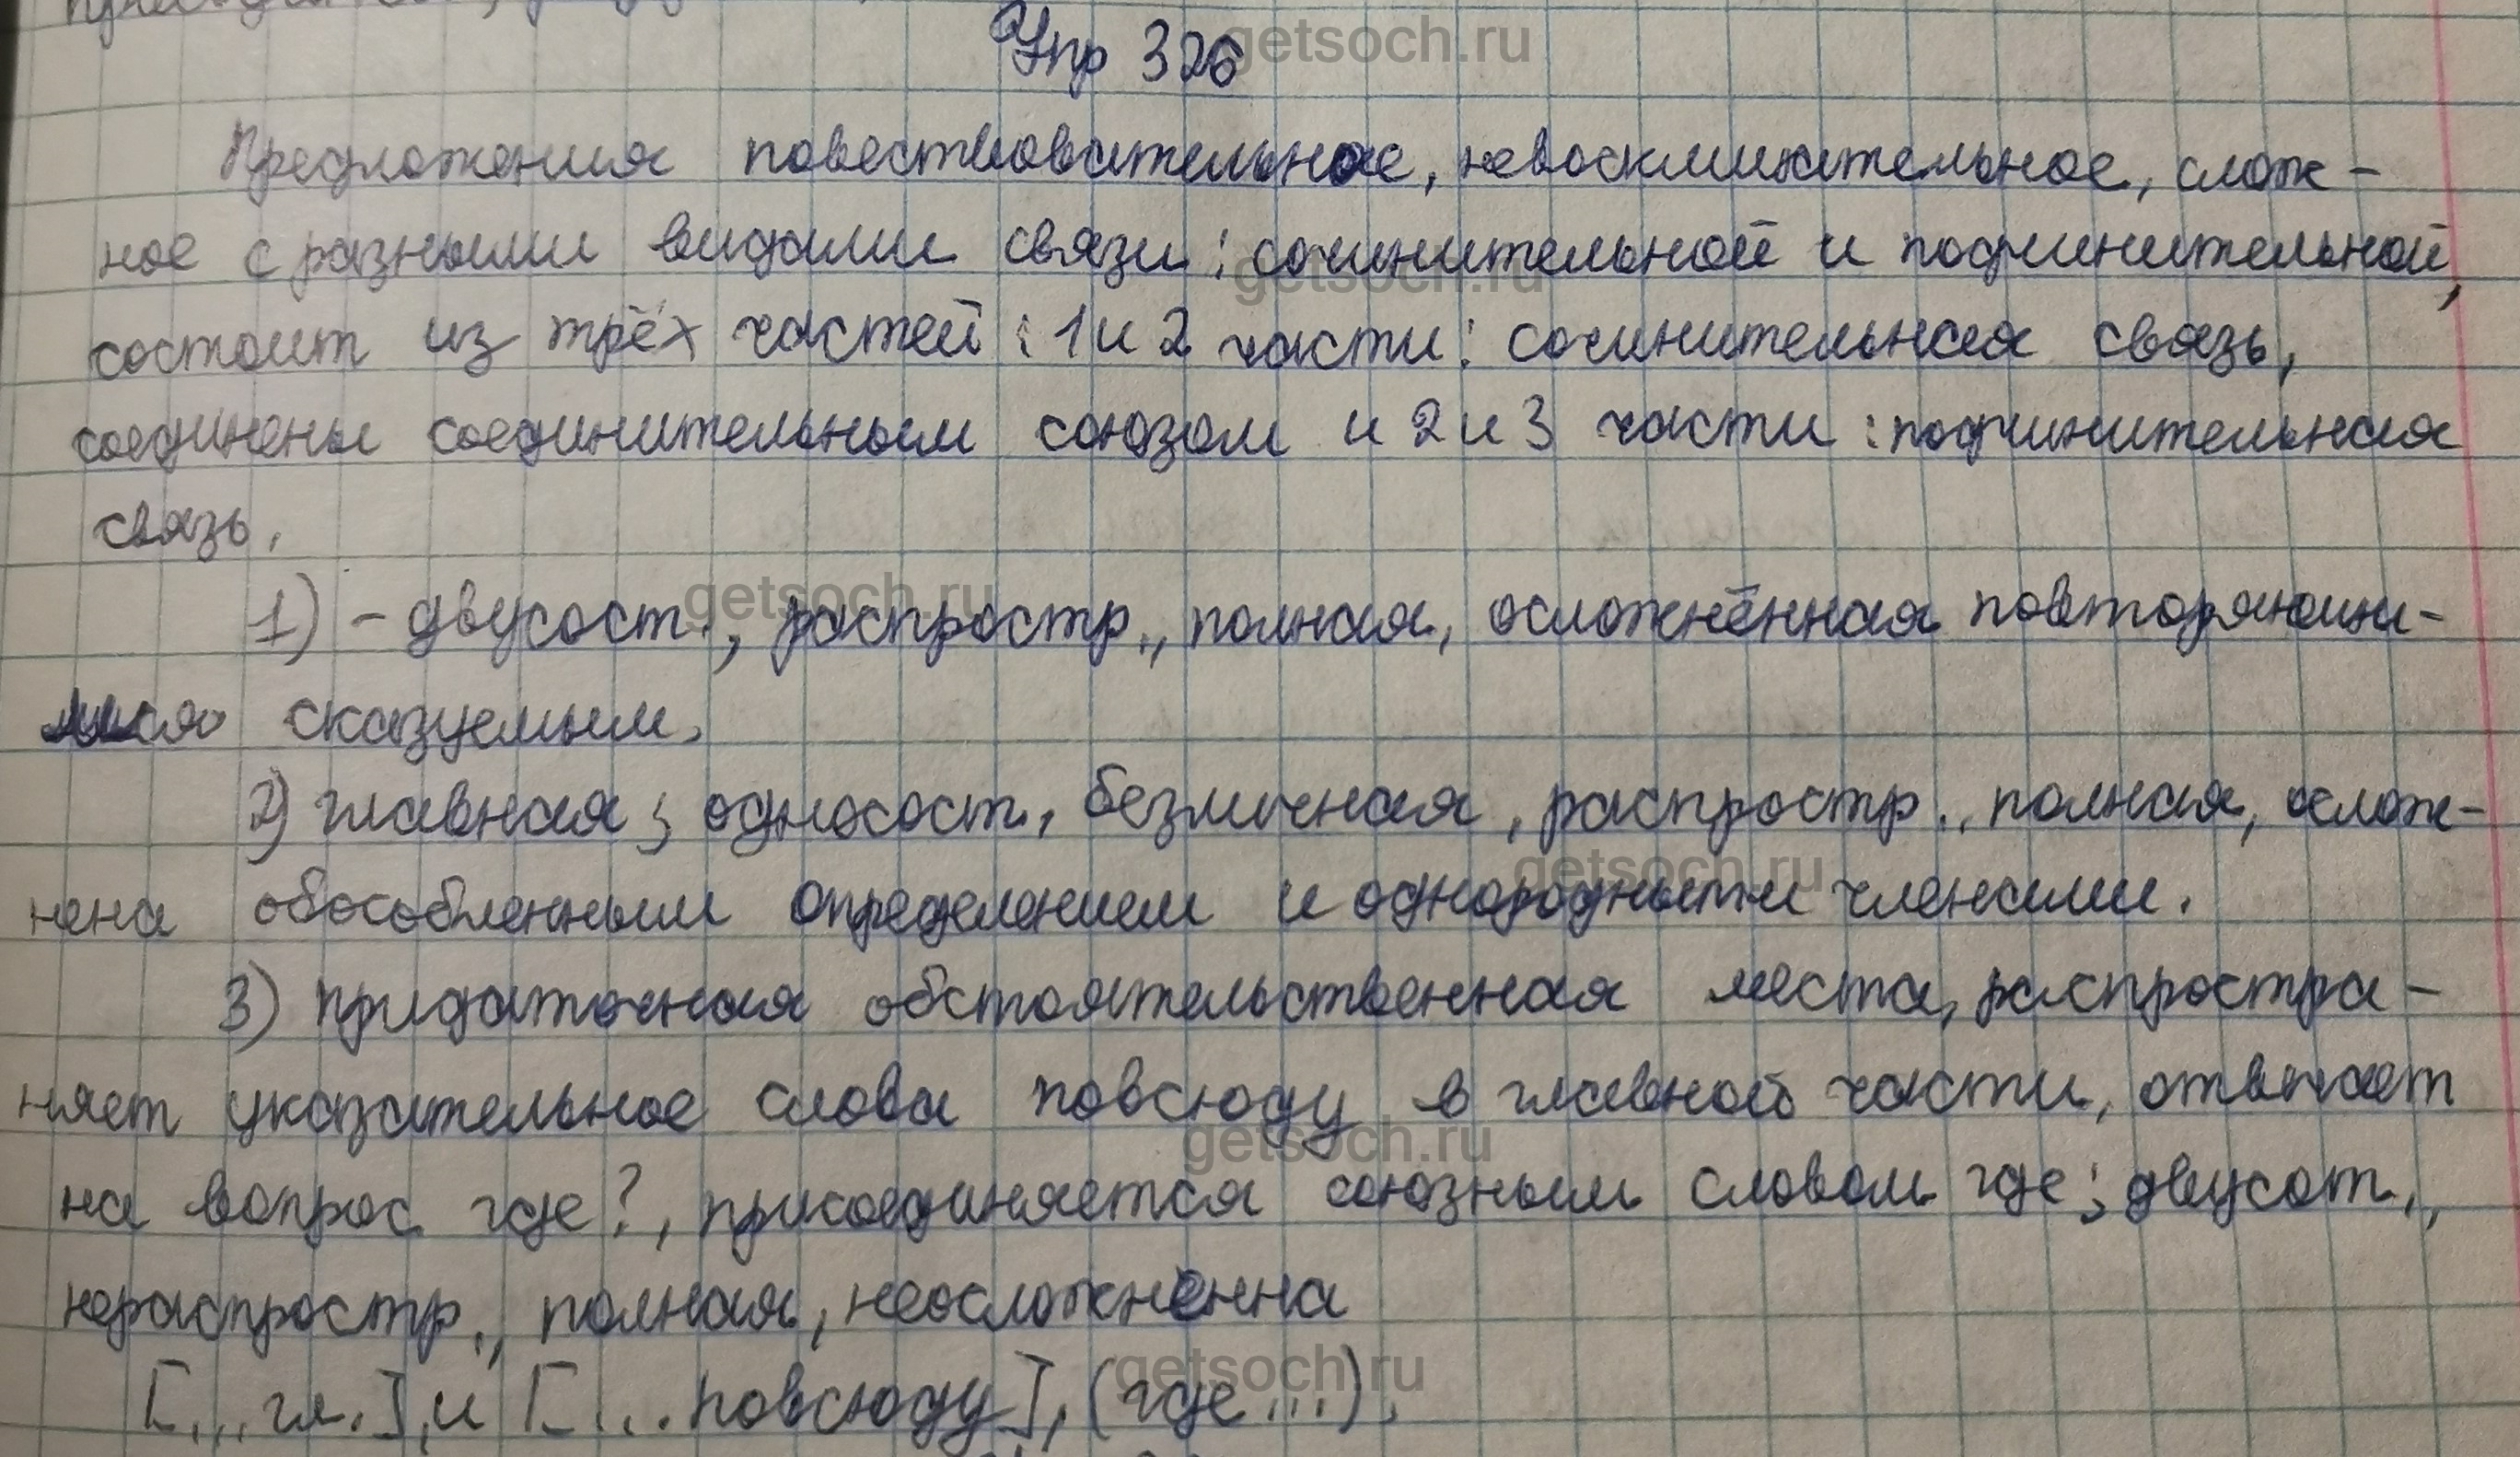 Упр 326
Предложения повествовательное, невосклицательное, слож-
ное с разными видами связи: сочинительной и подчинительной,
состоит из трёх частей: 1 и 2 части: сочинительная связь,
соединены соединительным союзом и 2 и 3 части: подчинительная
связь.
1) - двусост., распростр., полная, осложнённая повторяющи-
мися сказуемым.
2) главная; односост., безличная, распростр., полная, ослож-
нена обособленным определением и однородными членами.
3) придаточная обстоятельственная места, распростра-
няет указательное слова повсюду в главной части, отвечает
на вопрос где?, присоединяется союзным словом где; двусот.,
нераспростр., полная, неосложненна
[...гл.], и [... повсюду], (где...).
getsoch.ru
getsoch.ru
getsoch.ru
getsoch.ru
getsoch.ru
getsoch.ru